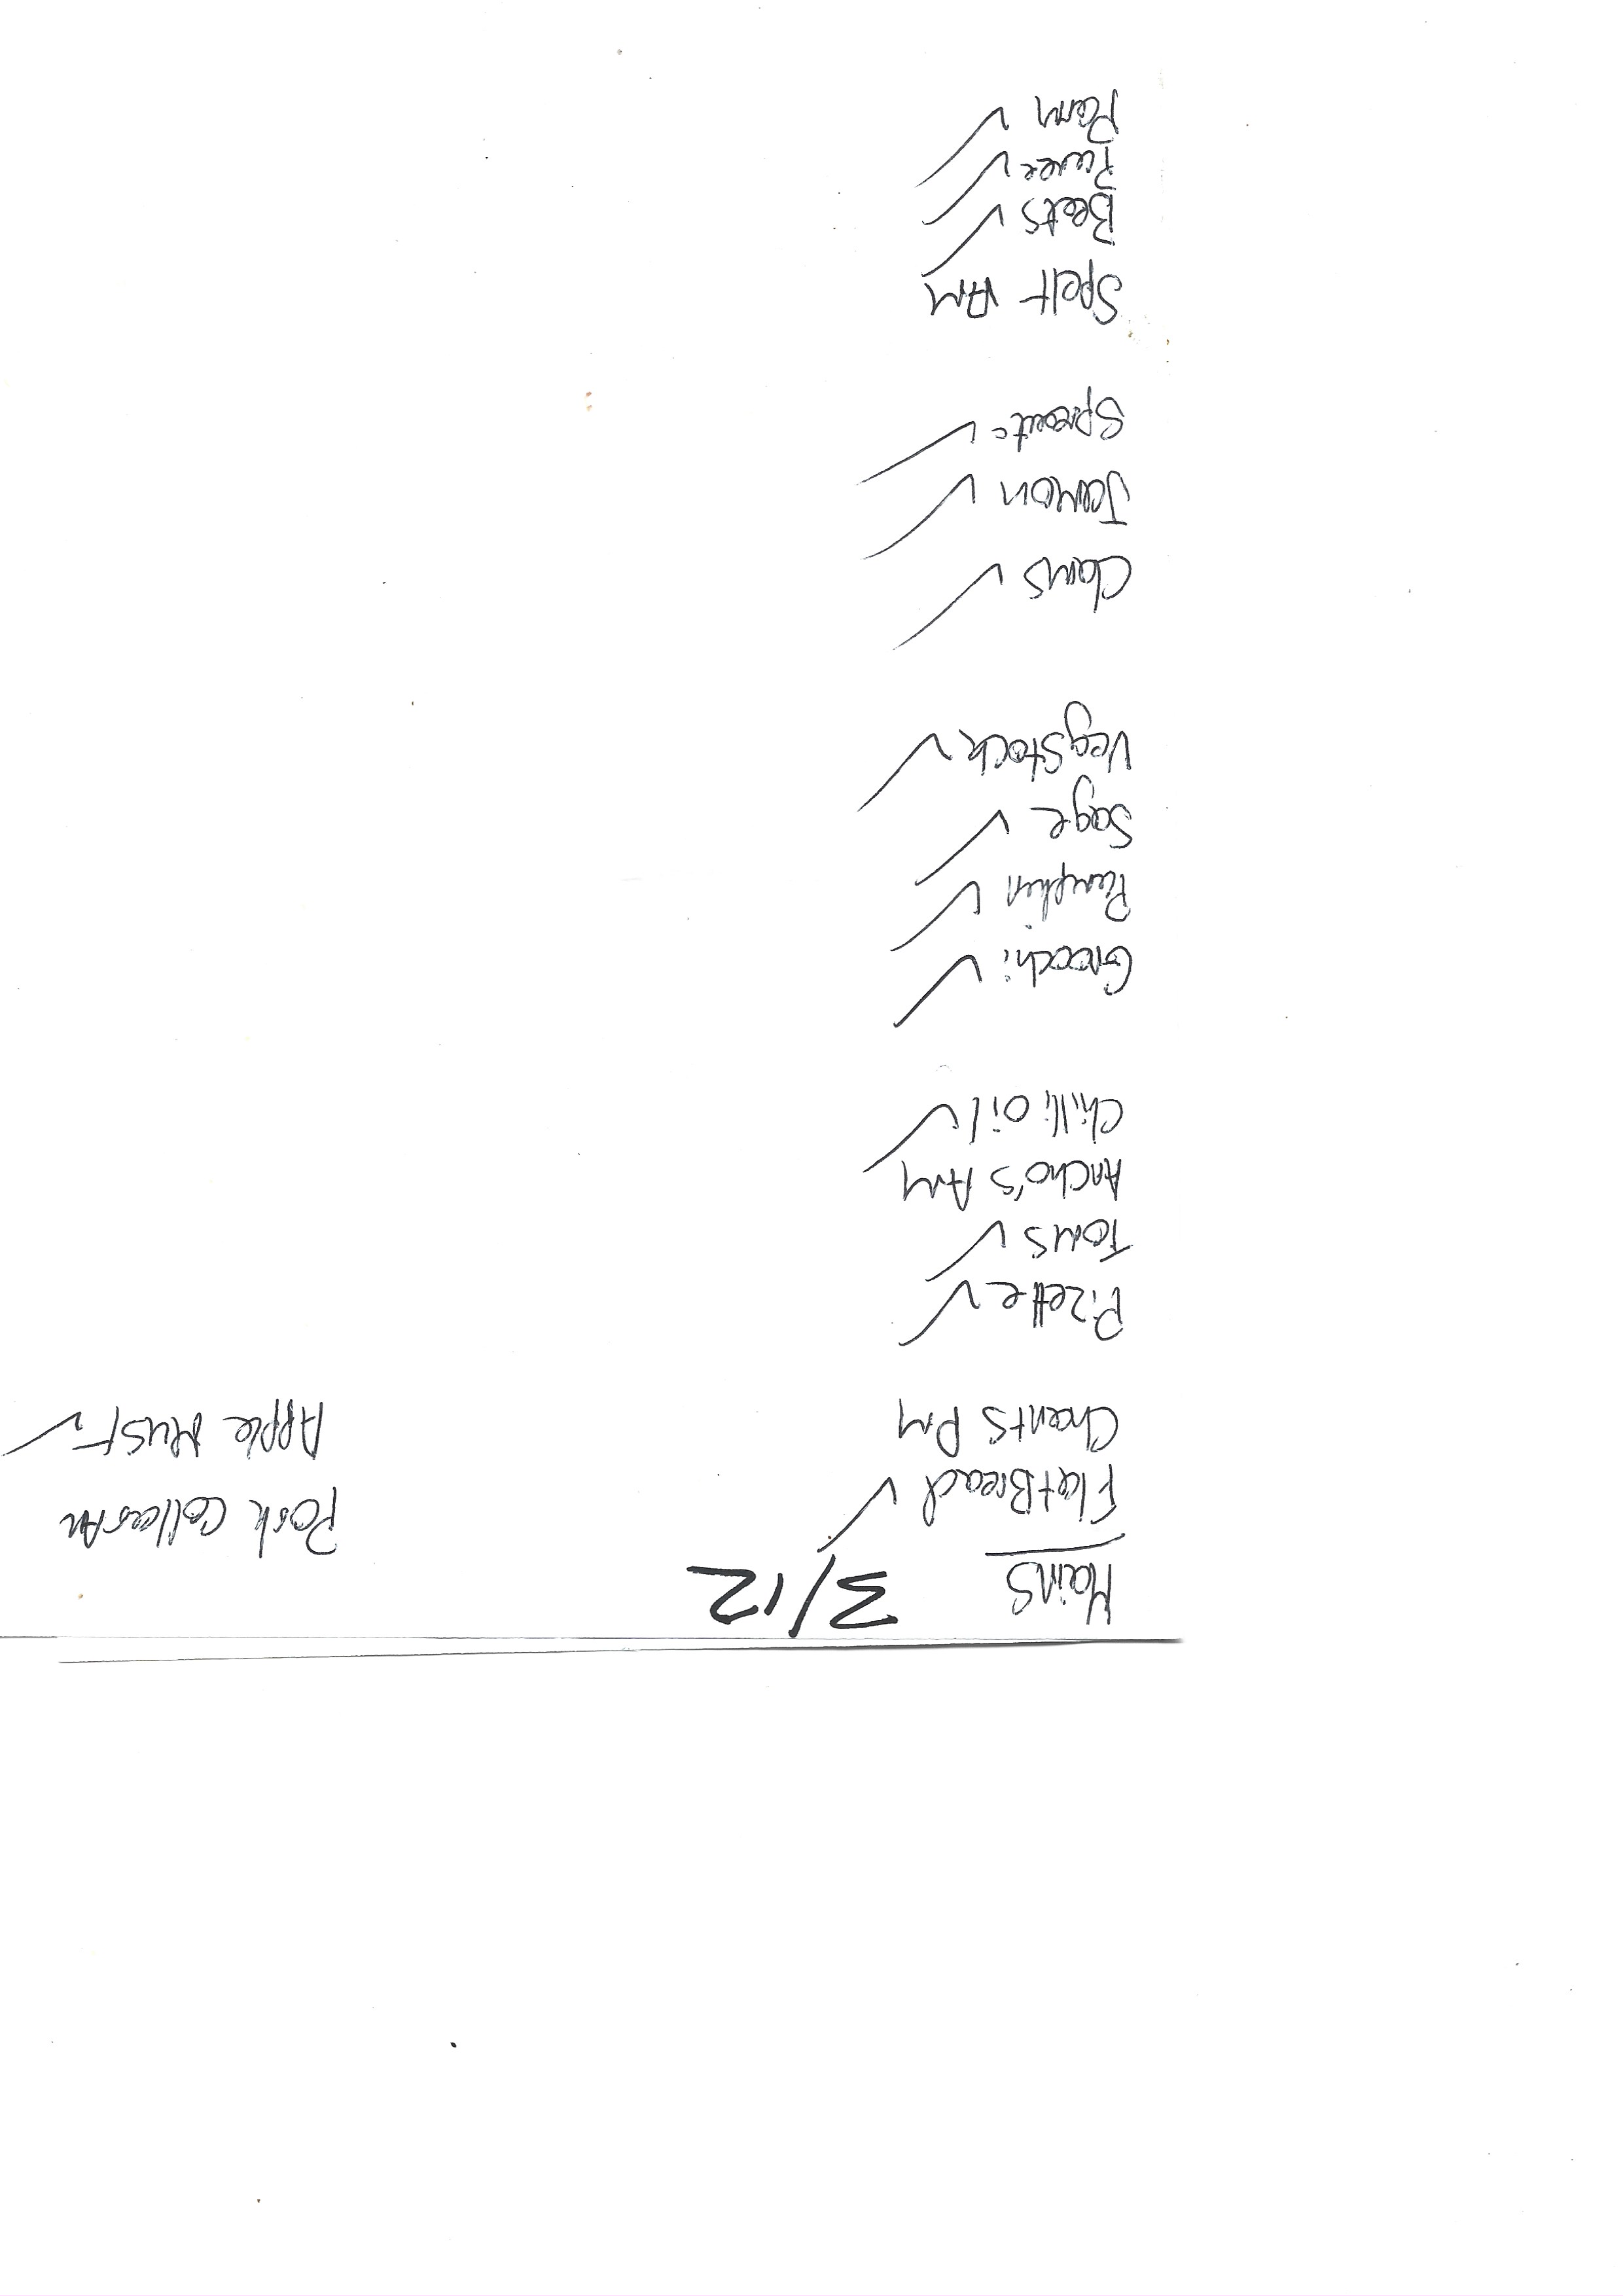 Mains 3/12
FlatBread ✓
Chants PM
Pizette ✓
Toms ✓
Ancho's AM
Chilli oil ✓
Gnocchi ✓
Pumpkin ✓
Sage ✓
Veg Stock ✓
Clams ✓
Jamon ✓
Sprouts ✓
Spelt AM
Beets ✓
Puree ✓
Parm ✓
Pork Collar AM
Apple Must. ✓